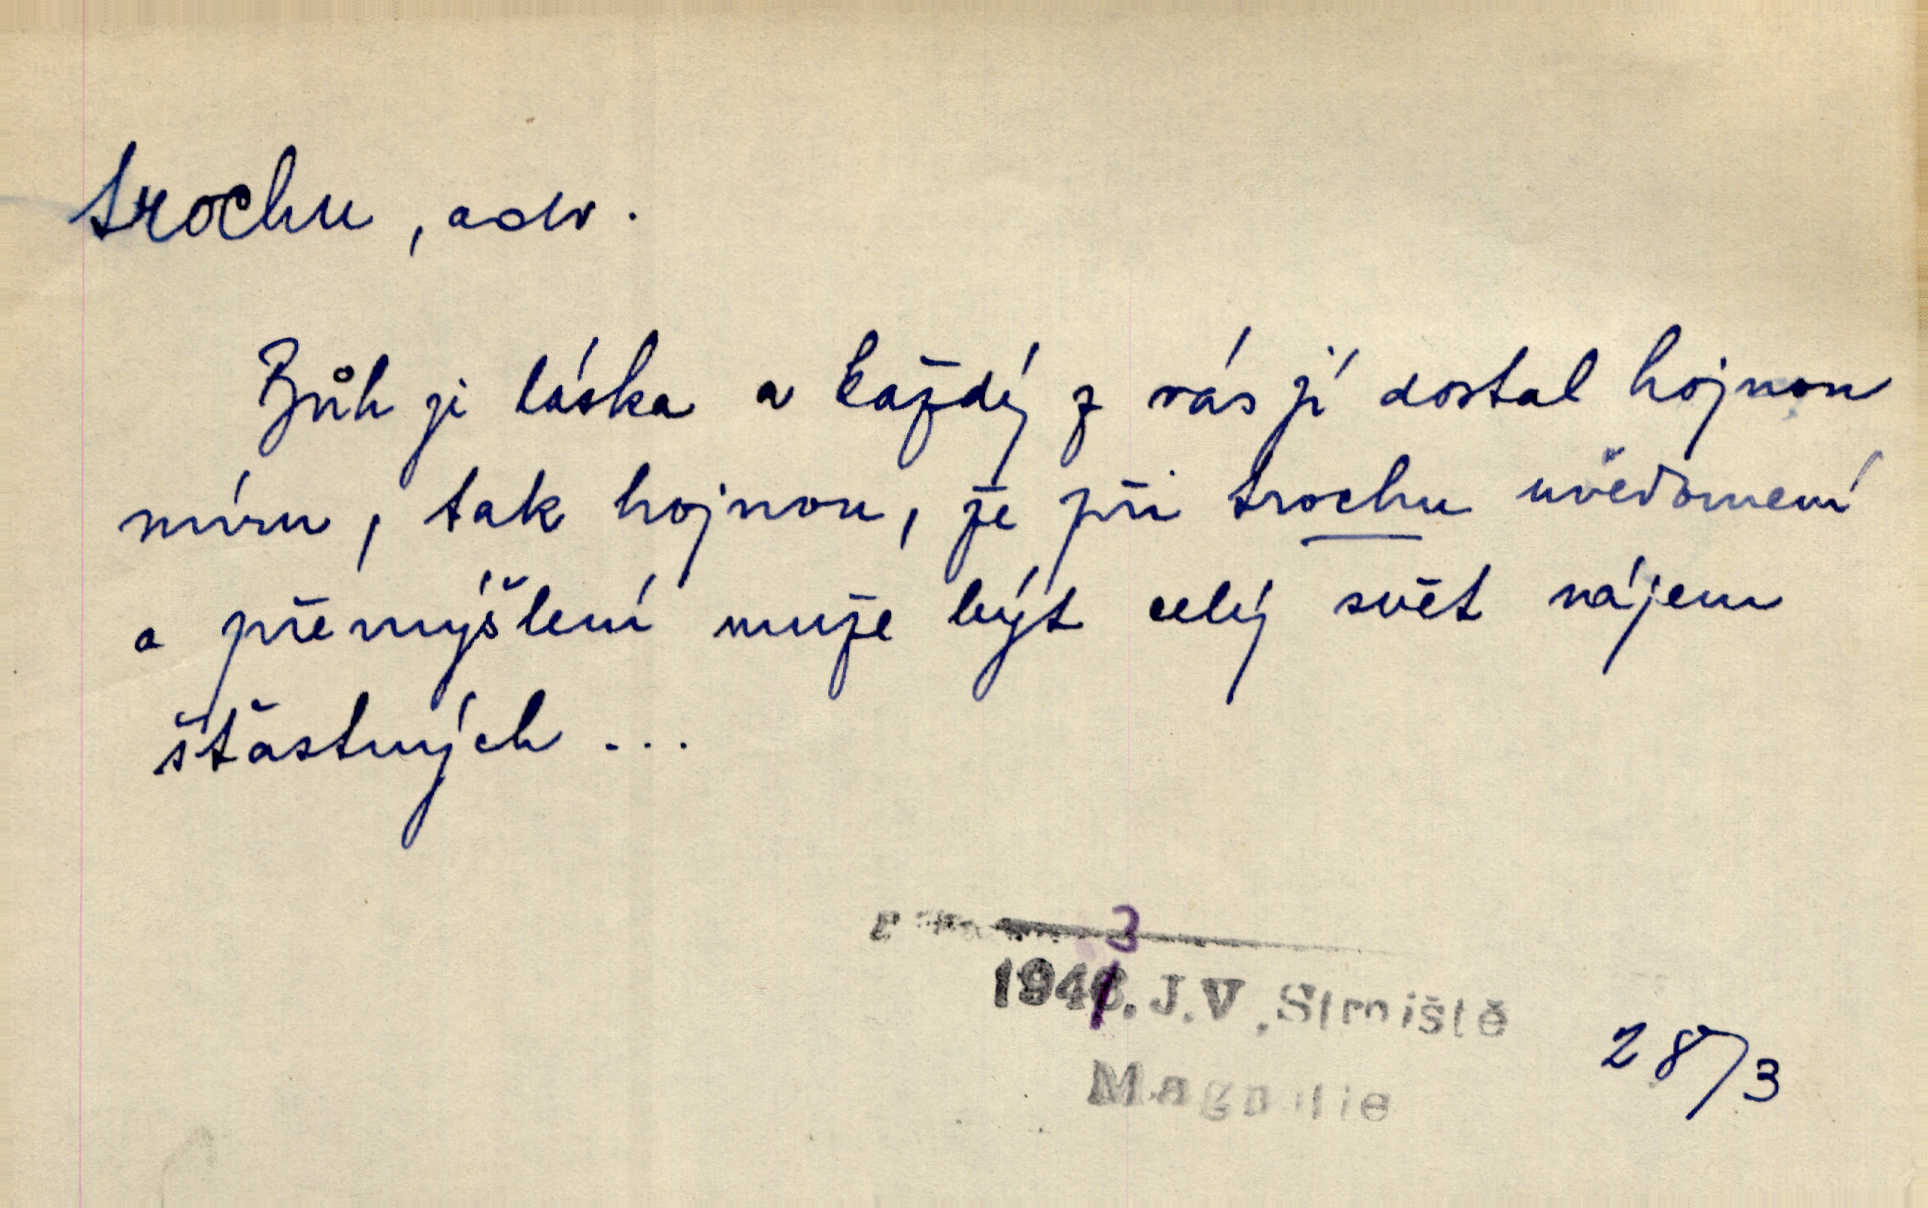 trochu, adv.
Bůh je láska a každý z vás jí dostal hojnou
míru, tak hojnou, že při trochu uvědomení
a přemýšlení muže být celý svět rájem
šťastných ...
3
194 . J.V. Strniště
Magnolie
28/3